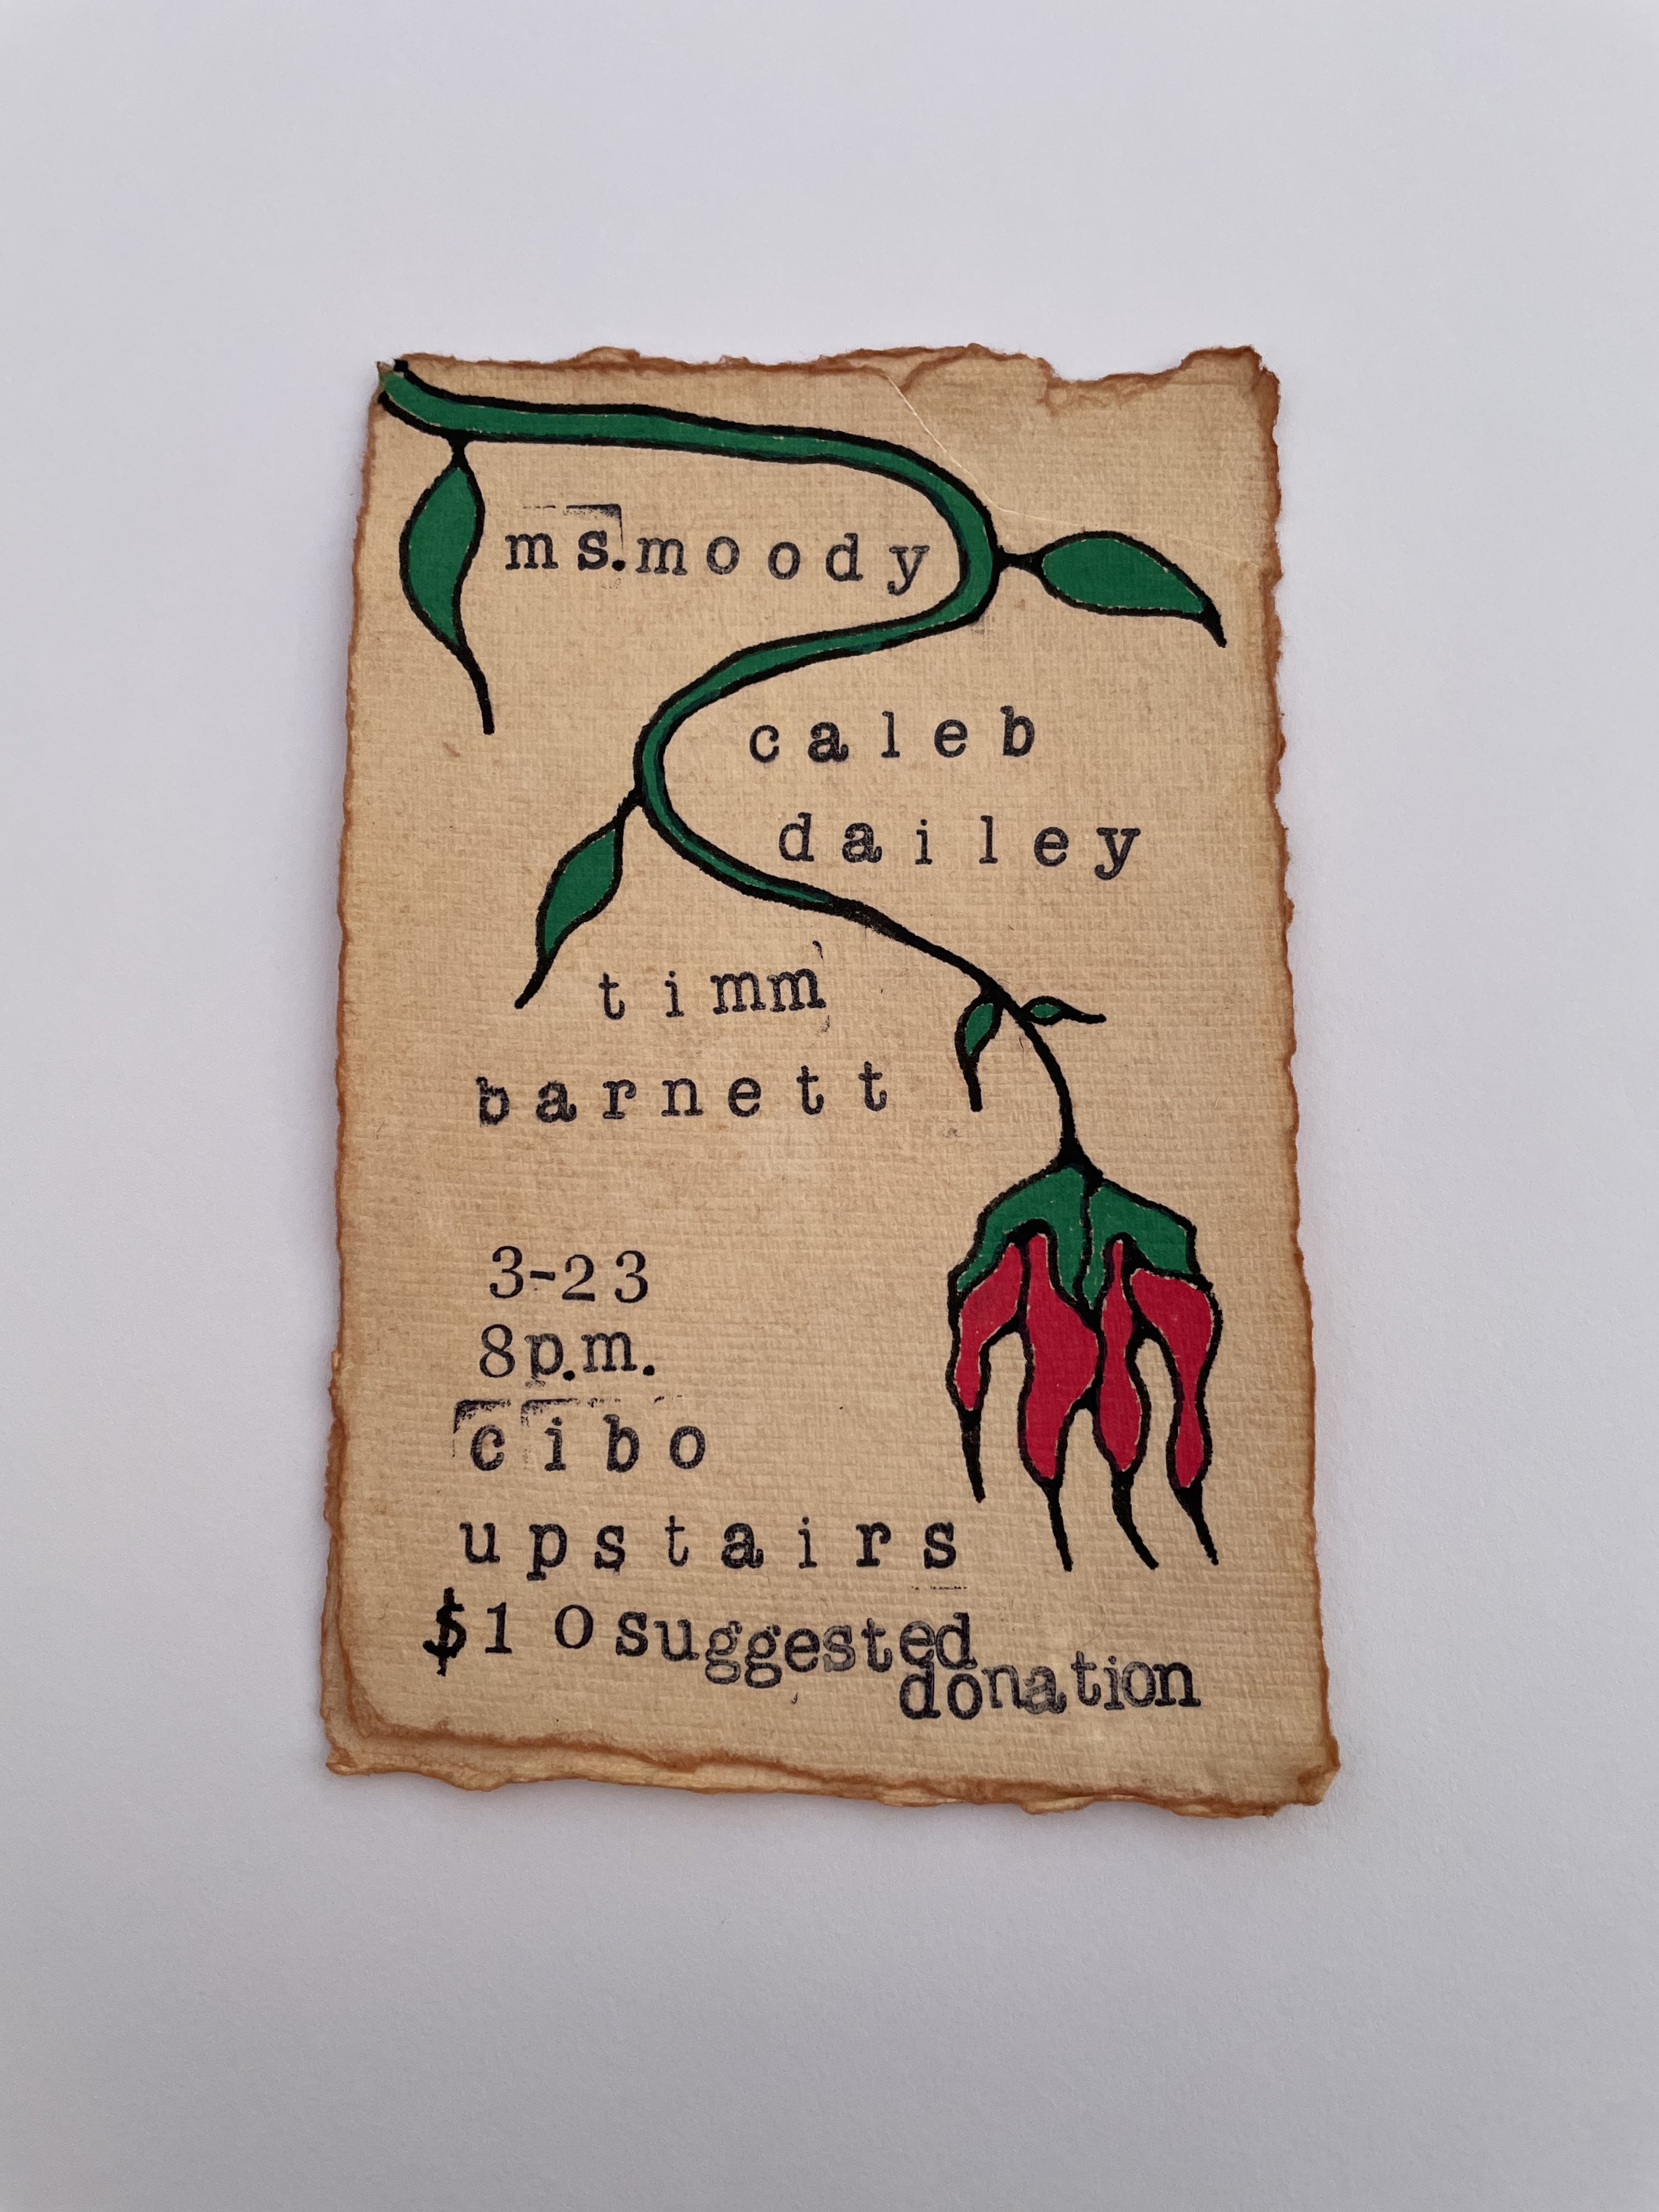 ms. moody
caleb
dailey
timm
barnett
3-23
8p.m.
cibo
upstairs
$10 suggested
donation